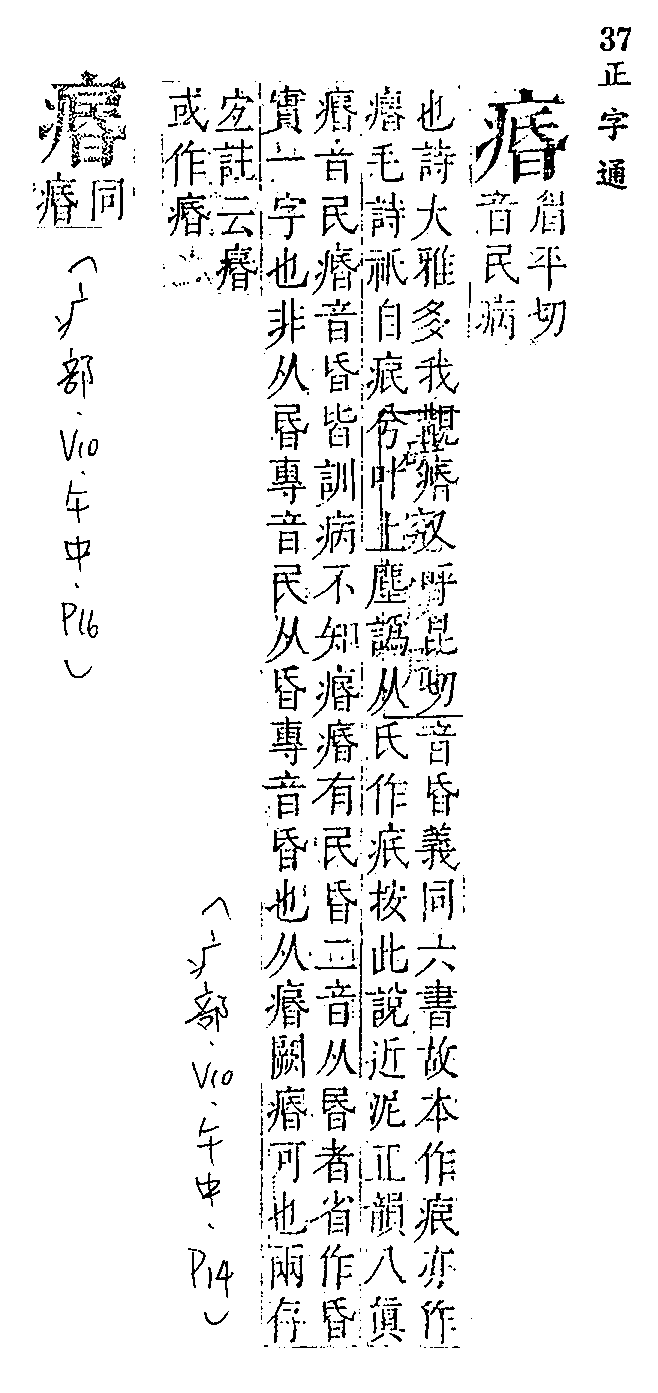 37 正字通
痻
眉平切
音民病
也詩大雅多我覯痻又呼昆切音昏義同六書故本作亦作
痻毛詩祇自兮叶上塵譌从氏作按此說近泥正韻八眞
痻音民痻音昏皆訓病不知痻痻有民昏二音从昬者省作昏
實一字也非从昬專音民从昏專音昏也从痻闕痻可也兩存
宐註云痻
或作痻
(疒部．V10．午中．P14)
痻
同
痻
(疒部．V10．午中．P16)